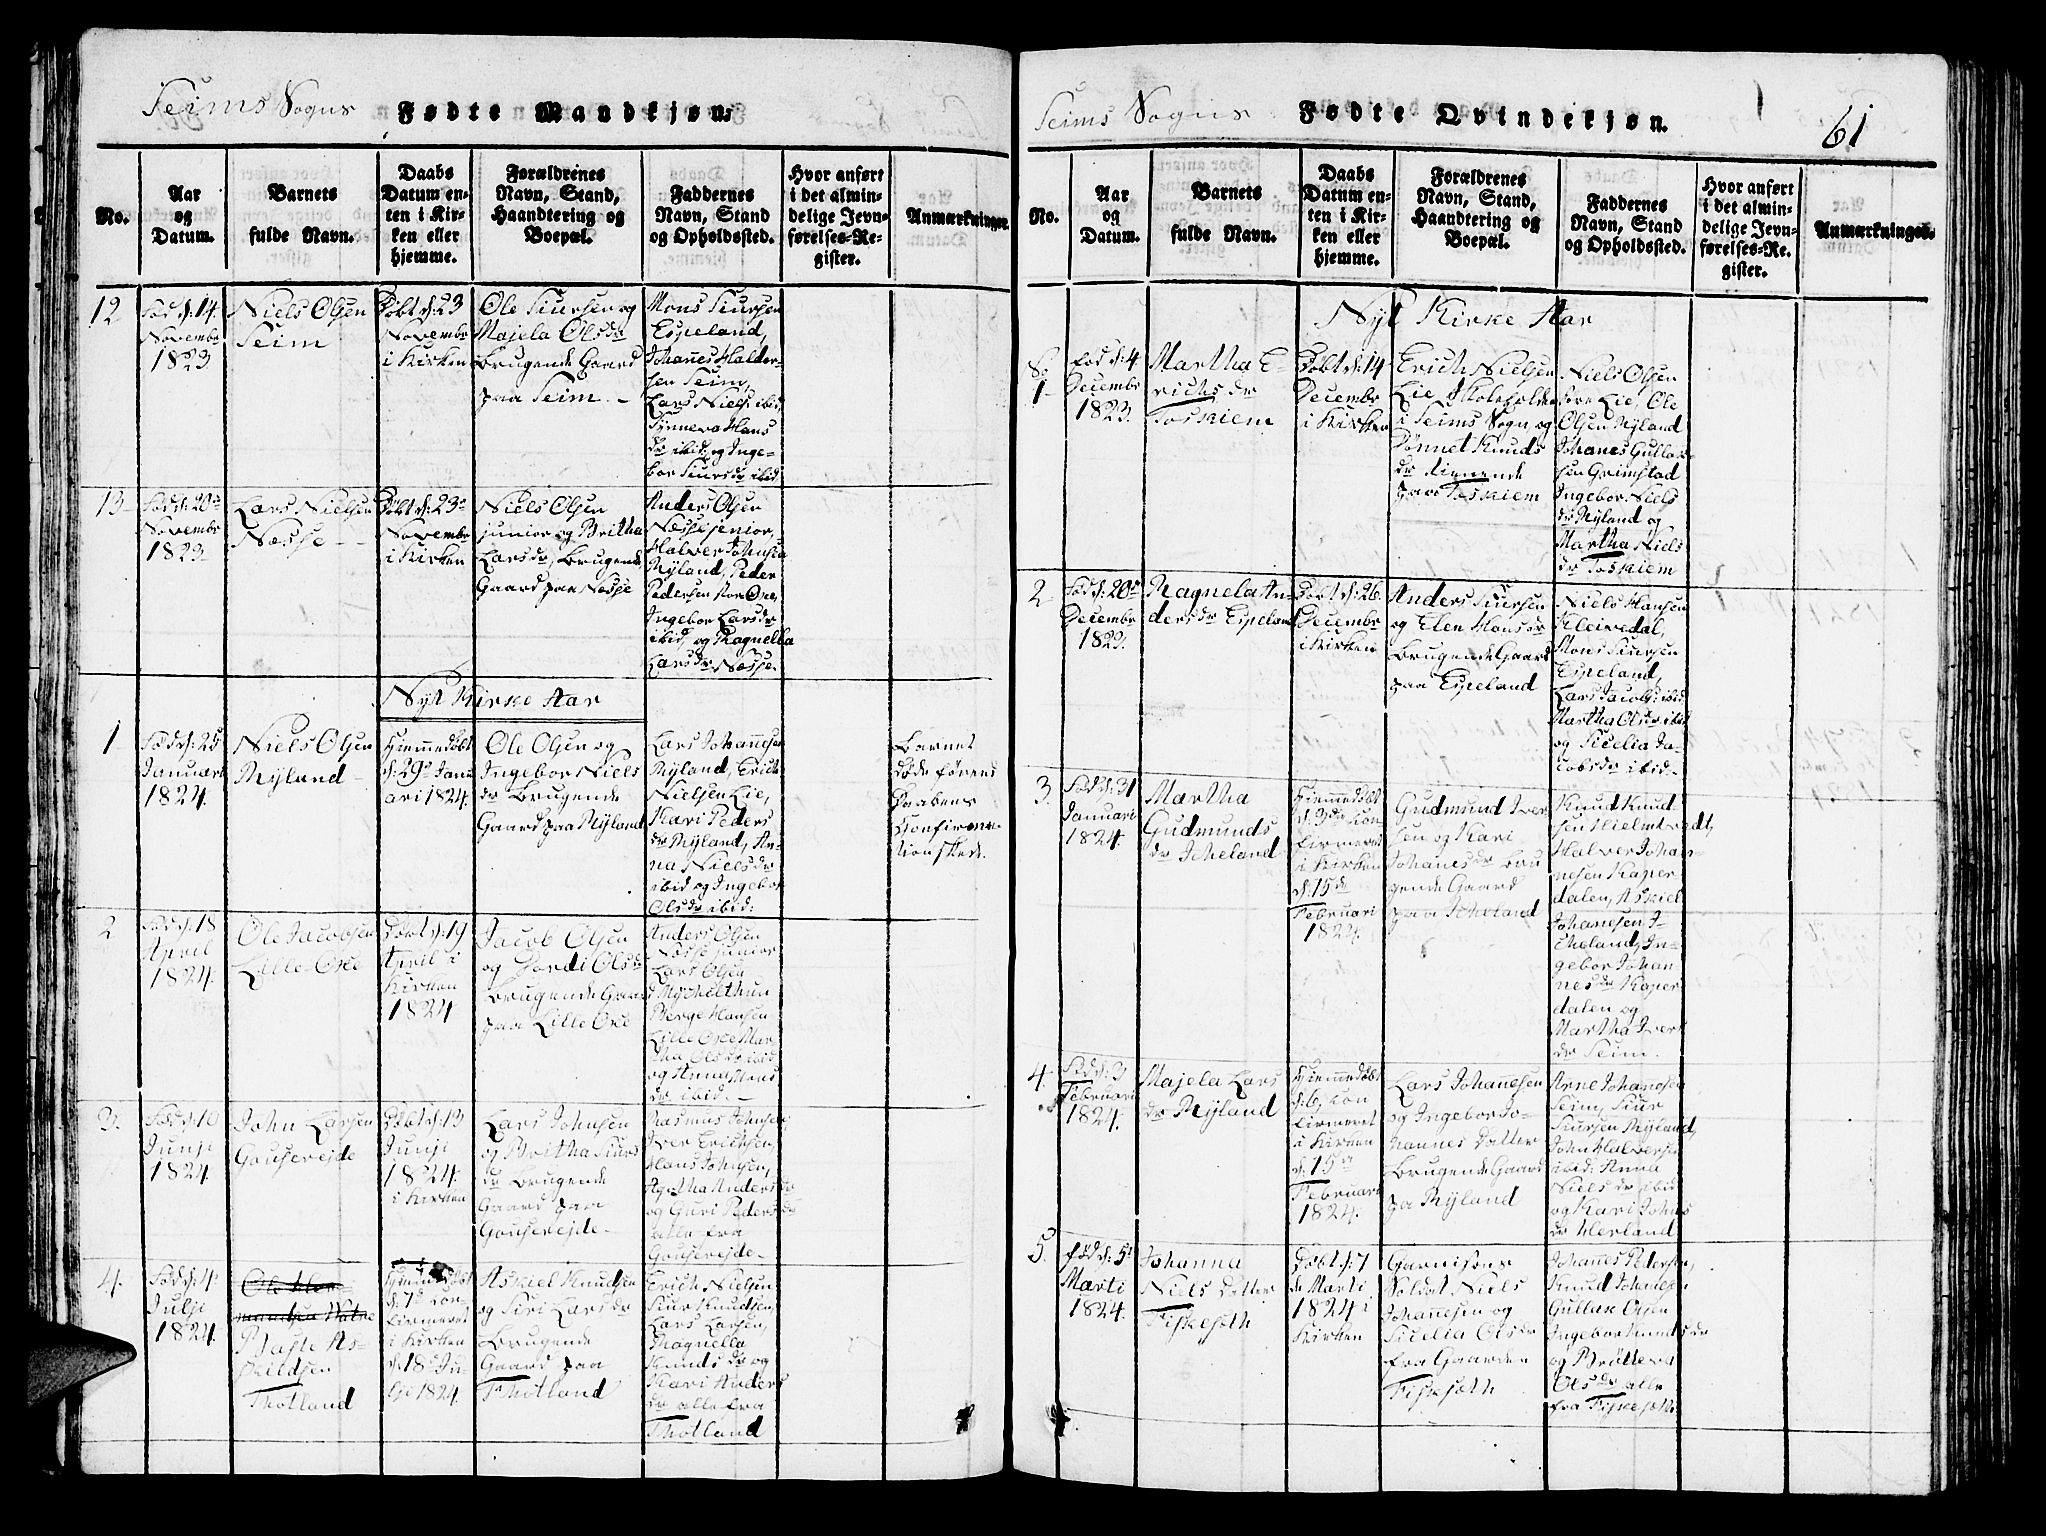 Seims Sogns Fødte Mandkjøn.
No.
Aar
og
Datum.
Barnets
fulde Navn.
Daabs
Datum en-
ten i Kir-
ken eller
hjemme.
Forældrenes
Navn, Stand,
Haandtering og
Boepæl.
Faddernes
Navn, Stand
og Opholdssted.
Hvor anført
i det almin-
delige Jevn-
førelses-Re-
gister.
Anmærkninger.
12
Fød d: 14
Novembr
1823
Niels Olsen
Seim
Døbt d: 23
Novembr
i Kirken
Ole Siursen og
Majela Olsdr
Brugende Gaard
paa Seim.
Mons Siursen
Espeland,
Johanes Halder-
sen Seim,
Lars Niels: ibid,
Synneva Hans
dr ibid: og Inge-
bor Siursdr ibid
13
Fød d: 20de
Novembr
1823
Lars Nielsen
Næsse
Døbt d: 23
Novembr
i Kirken
Niels Olsen
junior og Britha
Larsdr, Brugende
Gaard paa Næsse
Anders Olsen
Næsse senior,
Halver Johnsen
Myland, Peder
Pedersen stor Oxe,
Ingebor Larsdr
ibid, og Magnella
Larsdr Næsse.
Nyt Kirke Aar
1
Fød d: 25
Januari
1824
Niels Olsen
Myland
Hjemmedøbt
d: 29 Janu
ari 1824.
Ole Olsen og
Ingebor Niels
dr Brugende
Gaard paa Myland
Lars Johannesen
Myland, Erich
Nielsen Lie,
Kari Peders
dr Myland, An-
na Nielsdr
ibid og Ingebor
Olsdr ibid:
Barnet
døde førend
Daabens
Confirma-
tion skede.
2
Fød d: 18
April
1824
Ole Jacobsen
Lille Oxe
Døbt d: 19
April i
Kirken
1824
Jacob Olsen
og Jordi Olsdr
Brugende Gaard
paa Lille Oxe
Anders Olsen
Næsse junior
Lars Olsen
Mychelthun
Berge Hansen
Lille Oxe Mar
tha Olsdr ibid
og Anna Mons
dr ibid.
3.
Fød d: 10
Junji
1824
John Larsen
Gouserejde
Døbt d: 13
Junji
1824
i Kirken
Lars Johnsen
og Britha Siurs
dr Brugende
Gaard paa
Gouserejde
Rasmus Johnsen,
Iver Erichsen,
Hans Johnsen,
Agatha Andersdr
og Guri Pedersdr
alle fra
Gouserejde
4.
Fød d: 4
Julji
1824.
As-
kildsen
Thotland
Hjemmedøbt
d: 7d Con-
firmeret
i Kirken
d: 18 Ju-
lji 1824.
Askiel Knudsen
og Siri Larsdr
Brugende
Gaard paa
Thotland
Erich Nielsen
Siur Knudsen,
Lars Larsen,
Magnella
Knudsdr og
Kari Anders
dr alle fra
Thotland
Seims Sogns Fødte Qvindekjøn.
61
No.
Aar
og
Datum.
Barnets
fulde Navn.
Daabs
Datum en-
ten i Kir-
ken eller
hjemme.
Forældrenes
Navn, Stand,
Haandtering og
Boepæl.
Faddernes
Navn, Stand
og Opholdssted.
Hvor anført
i det almin-
delige Jevn-
førelses-Re-
gister.
Anmærkninger.
Nyt Kirke Aar
No
1
Fød d: 4
Decembr
1823.
Martha E-
richs dr
Toskiem
Døbt d: 14
Decembr
i Kirken
Erich Nielsen
Lie Skoleholder
i Seims Sogn og
Knuds
dr tienende
paa Toskiem
Niels Olsen
Lie, Ole
Olsen Myland
Johanes Gullac-
sen Grimstad
Ingebor Niels
dr Myland og
Martha Niels
dr Toskiem
2
Fød d: 20de
Decembr
1823.
Magnela An-
dersdr Espeland
Døbt d: 26
Decembr
i Kirken
Anders Siursen
og Elen Hansdr
Brugende Gaard
paa Espeland
Niels Hansen
Kleivedal,
Mons Siursen
Espeland,
Lars Jacobs: ibid
Martha Olsdr ibid
og Sicelia Ja-
cobsdr ibid
3.
Fød d: 31
Januari
1824.
Martha
Gudmunds
dr Icheland
Hjemmedøbt
d: 3de Con
firmeret
i Kirken
d: 15de
Februari
1824.
Gudmund Iver
sen og Kari
Johanesdr Bru
gende Gaard
paa Icheland
Knud Knud
sen Hielmtvedt,
Halver Johan-
nesen Kaper
dalen, Askiel
Johanesen I-
cheland, In-
gebor Johan
nesdr Kaper
dalen og
Martha Ivers
dr Seim.
4.
Fød d: 3
Februari
1824.
Majela Lars
dr Myland
Hjemmedøbt
d: 6, Con
firmeret
i Kirken
d: 15de
Februari
1824.
Lars Johanesen
og Ingebor Jo-
hannes datter
Brugende Gaard
pa Myland
Arne Johanesen
Seim, Siur
Siursen Myland,
John Halversen
ibid: Anna
Nielsdr ibid
og Kari Johns
dr Herland
5.
Fød d: 5
Marti
1824.
Johanna
Niels datter
Fiskesæth
Døbt d: 7
de Marti
1824 i
Kirken
Garnisons
Soldat Niels
Johannesen og
Sicelia Olsdr
fra Gaarden
Fiskesæth.
Johanes Pedersen,
Knud Johanesen
Gullak Olsen
Ingebor Knudsdr
og
Olsdr alle
fra Fiskesæth.